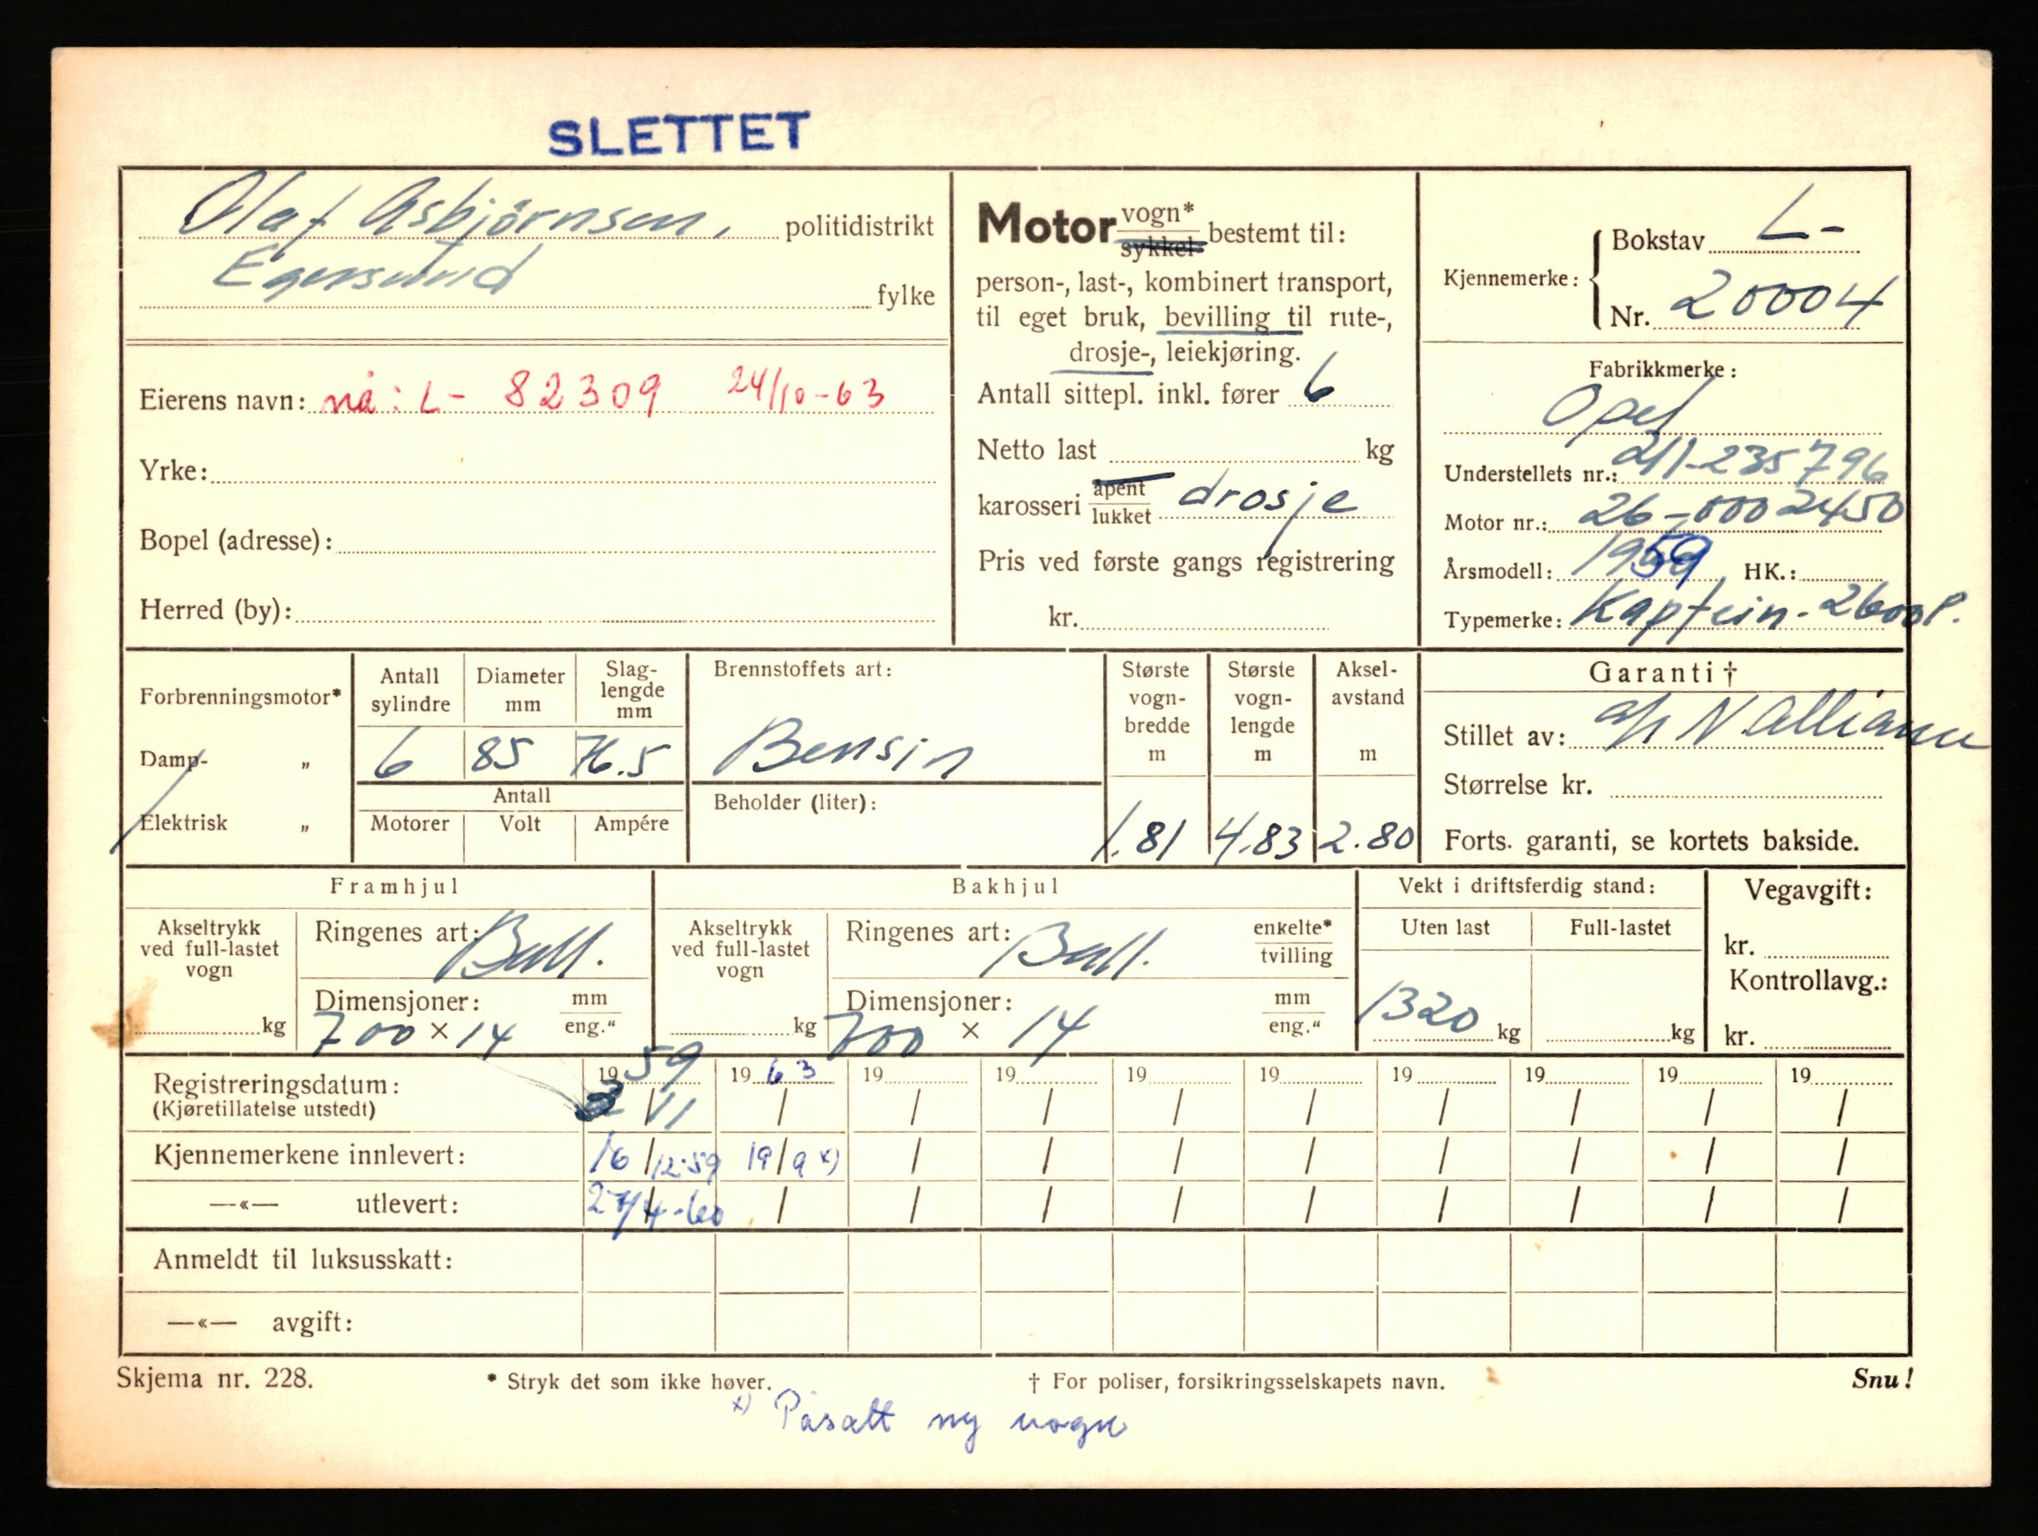 SLETTET
Olaf Asbjörnsen, politidistrikt
Egersund fylke
Eierens navn: nå: L- 82309 24/10-63
Yrke:
Bopel (adresse):
Herred (by):
Motor vogn* / sykkel bestemt til:
person-, last-, kombinert transport,
til eget bruk, bevilling til rute-,
drosje-, leiekjøring.
Antall sittepl. inkl. fører 6
Netto last kg
karosseri åpent / lukket drosje
Pris ved første gangs registrering
kr.
Kjennemerke: Bokstav L-
Nr. 20004
Fabrikkmerke:
Opel
Understellets nr.: 211-235796
Motor nr.: 26-0002450
Årsmodell: 1959 HK.:
Typemerke: Kaptein-2600P.
Forbrenningsmotor*
Damp- „
Elektrisk „
Antall sylindre Diameter mm Slag-lengde mm
6 85 76.5
Antall
Motorer Volt Ampére
Brennstoffets art:
Bensin
Beholder (liter):
Største vogn-bredde m Største vogn-lengde m Aksel-avstand m
1.81 4.83 2.80
Garanti †
Stillet av: a/s N. Alliance
Størrelse kr.
Forts. garanti, se kortets bakside.
Framhjul
Akseltrykk ved full-lastet vogn
kg
Ringenes art: Ball.
Dimensjoner: mm / eng."
700 × 14
Bakhjul
Akseltrykk ved full-lastet vogn
kg
Ringenes art: Ball. enkelte* / tvilling
Dimensjoner: mm / eng."
700 × 14
Vekt i driftsferdig stand:
Uten last Full-lastet
1320 kg kg
Vegavgift:
kr.
Kontrollavg.:
kr.
Registreringsdatum: 1959 1963 19 19 19 19 19 19 19 19
(Kjøretillatelse utstedt) / 11 / / / / / / / / /
Kjennemerkene innlevert: 16/12-59 19/9 x) / / / / / / / /
—«— utlevert: 27/4-60 / / / / / / / / /
Anmeldt til luksusskatt:
—«— avgift:
Skjema nr. 228. * Stryk det som ikke høver. † For poliser, forsikringsselskapets navn. Snu!
x) Påsatt ny vogn